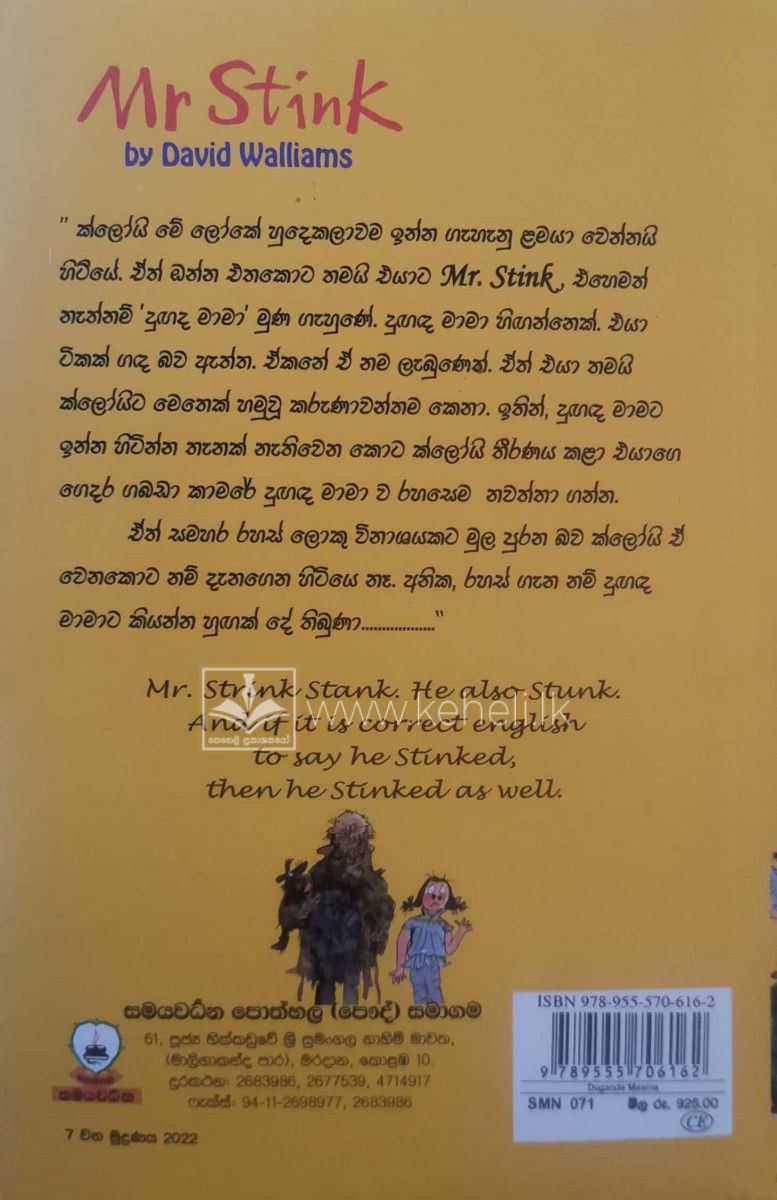 Mr Stink
by David Walliams
" ක්ලෝයි මේ ලෝකේ හුදෙකලාවම ඉන්න ගැහැනු ළමයා වෙන්නයි
හිටියේ. ඒත් ඔන්න එතකොට තමයි එයාට Mr. Stink, එහෙමත්
නැත්නම් 'දුඟඳ මාමා' මුණ ගැහුණේ. දුඟඳ මාමා හිඟන්නෙක්. එයා
ටිකක් ගඳ බව ඇත්ත. ඒකනේ ඒ නම ලැබුණෙත්. ඒත් එයා තමයි
ක්ලෝයිට මෙතෙක් හමුවූ කරුණාවන්තම කෙනා. ඉතින්, දුඟඳ මාමට
ඉන්න හිටින්න තැනක් නැතිවෙන කොට ක්ලෝයි තීරණය කළා එයාගෙ
ගෙදර ගබඩා කාමරේ දුඟඳ මාමා ව රහසෙම නවත්තා ගන්න.
ඒත් සමහර රහස් ලොකු විනාශයකට මුල පුරන බව ක්ලෝයි ඒ
වෙනකොට නම් දැනගෙන හිටියෙ නෑ. අනික, රහස් ගැන නම් දුඟඳ
මාමාට කියන්න හුඟක් දේ තිබුණා.................."
Mr. Strink Stank. He also Stunk.
www.keheli.lk
කෙහෙලි ප්‍රකාශකයෝ
And if it is correct english
to say he Stinked,
then he Stinked as well.
සමයවර්ධන පොත්හල (පෞද්) සමාගම
61, පූජ්‍ය හික්කඩුවේ ශ්‍රී සුමංගල නාහිමි මාවත,
(මාලිගාකන්ද පාර), මරදාන, කොළඹ 10.
දුරකථන: 2683986, 2677539, 4714917
ෆැක්ස්: 94-11-2698977, 2683986
සමයවර්ධන
7 වන මුද්‍රණය 2022
ISBN 978-955-570-616-2
9 789555 706162
Duganda Maama
SMN 071 මිල රු. 925.00
CE